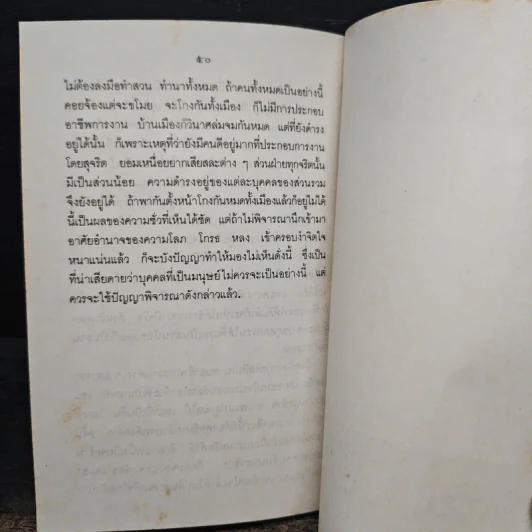 ๕๐
ไม่ต้องลงมือทำสวน ทำนาทั้งหมด ถ้าคนทั้งหมดเป็นอย่างนี้
คอยจ้องแต่จะขโมย จะโกงกันทั้งเมือง ก็ไม่มีการประกอบ
อาชีพการงาน บ้านเมืองก็วินาศล่มจมกันหมด แต่ที่ยังดำรง
อยู่ได้นั้น ก็เพราะเหตุที่ว่ายังมีคนดีอยู่มากที่ประกอบการงาน
โดยสุจริต ยอมเหนื่อยยากเสียสละต่าง ๆ ส่วนฝ่ายทุจริตนั้น
มีเป็นส่วนน้อย ความดำรงอยู่ของแต่ละบุคคลของส่วนรวม
จึงยังอยู่ได้ ถ้าพากันตั้งหน้าโกงกันหมดทั้งเมืองแล้วก็อยู่ไม่ได้
นี้เป็นผลของความชั่วที่เห็นได้ชัด แต่ถ้าไม่พิจารณานึกเข้ามา
อาศัยอำนาจของความโลภ โกรธ หลง เข้าครอบงำจิตใจ
หนาแน่นแล้ว ก็จะบังปัญญาทำให้มองไม่เห็นดั่งนี้ ซึ่งเป็น
ที่น่าเสียดายว่าบุคคลที่เป็นมนุษย์ไม่ควรจะเป็นอย่างนี้ แต่
ควรจะใช้ปัญญาพิจารณาดังกล่าวแล้ว.